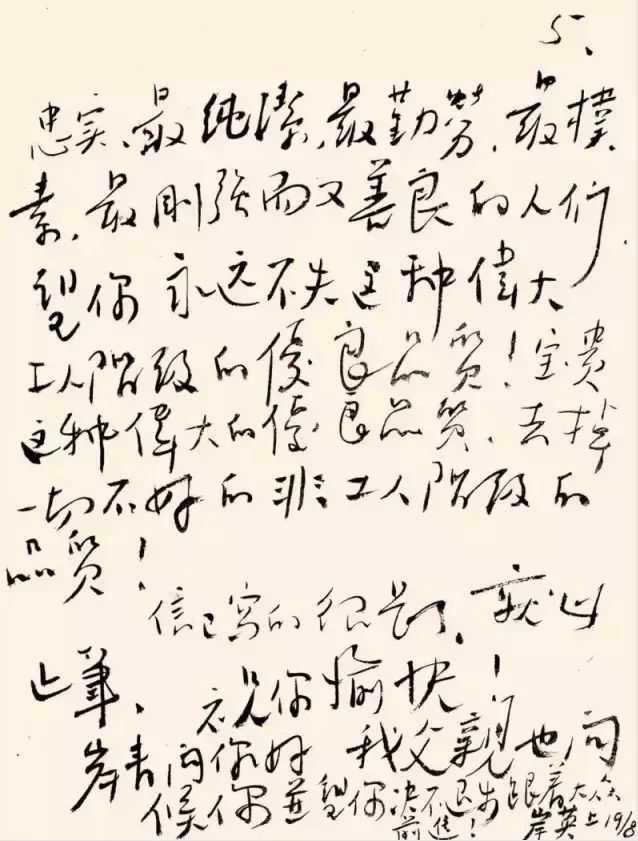 5、
忠实、最纯潔、最勤劳、最樸
素、最刚强而又善良的人们
望你永远不失这种偉大
工人阶级的優良品質!宝贵
这种偉大的優良品質、去掉
一切不好的非工人阶级的
品質!
信已写的很長了、就此
止筆、祝你愉快!
岸青问你好 我父親也问
候你並望你决不退步跟着大众
前進! 岸英上 19/8